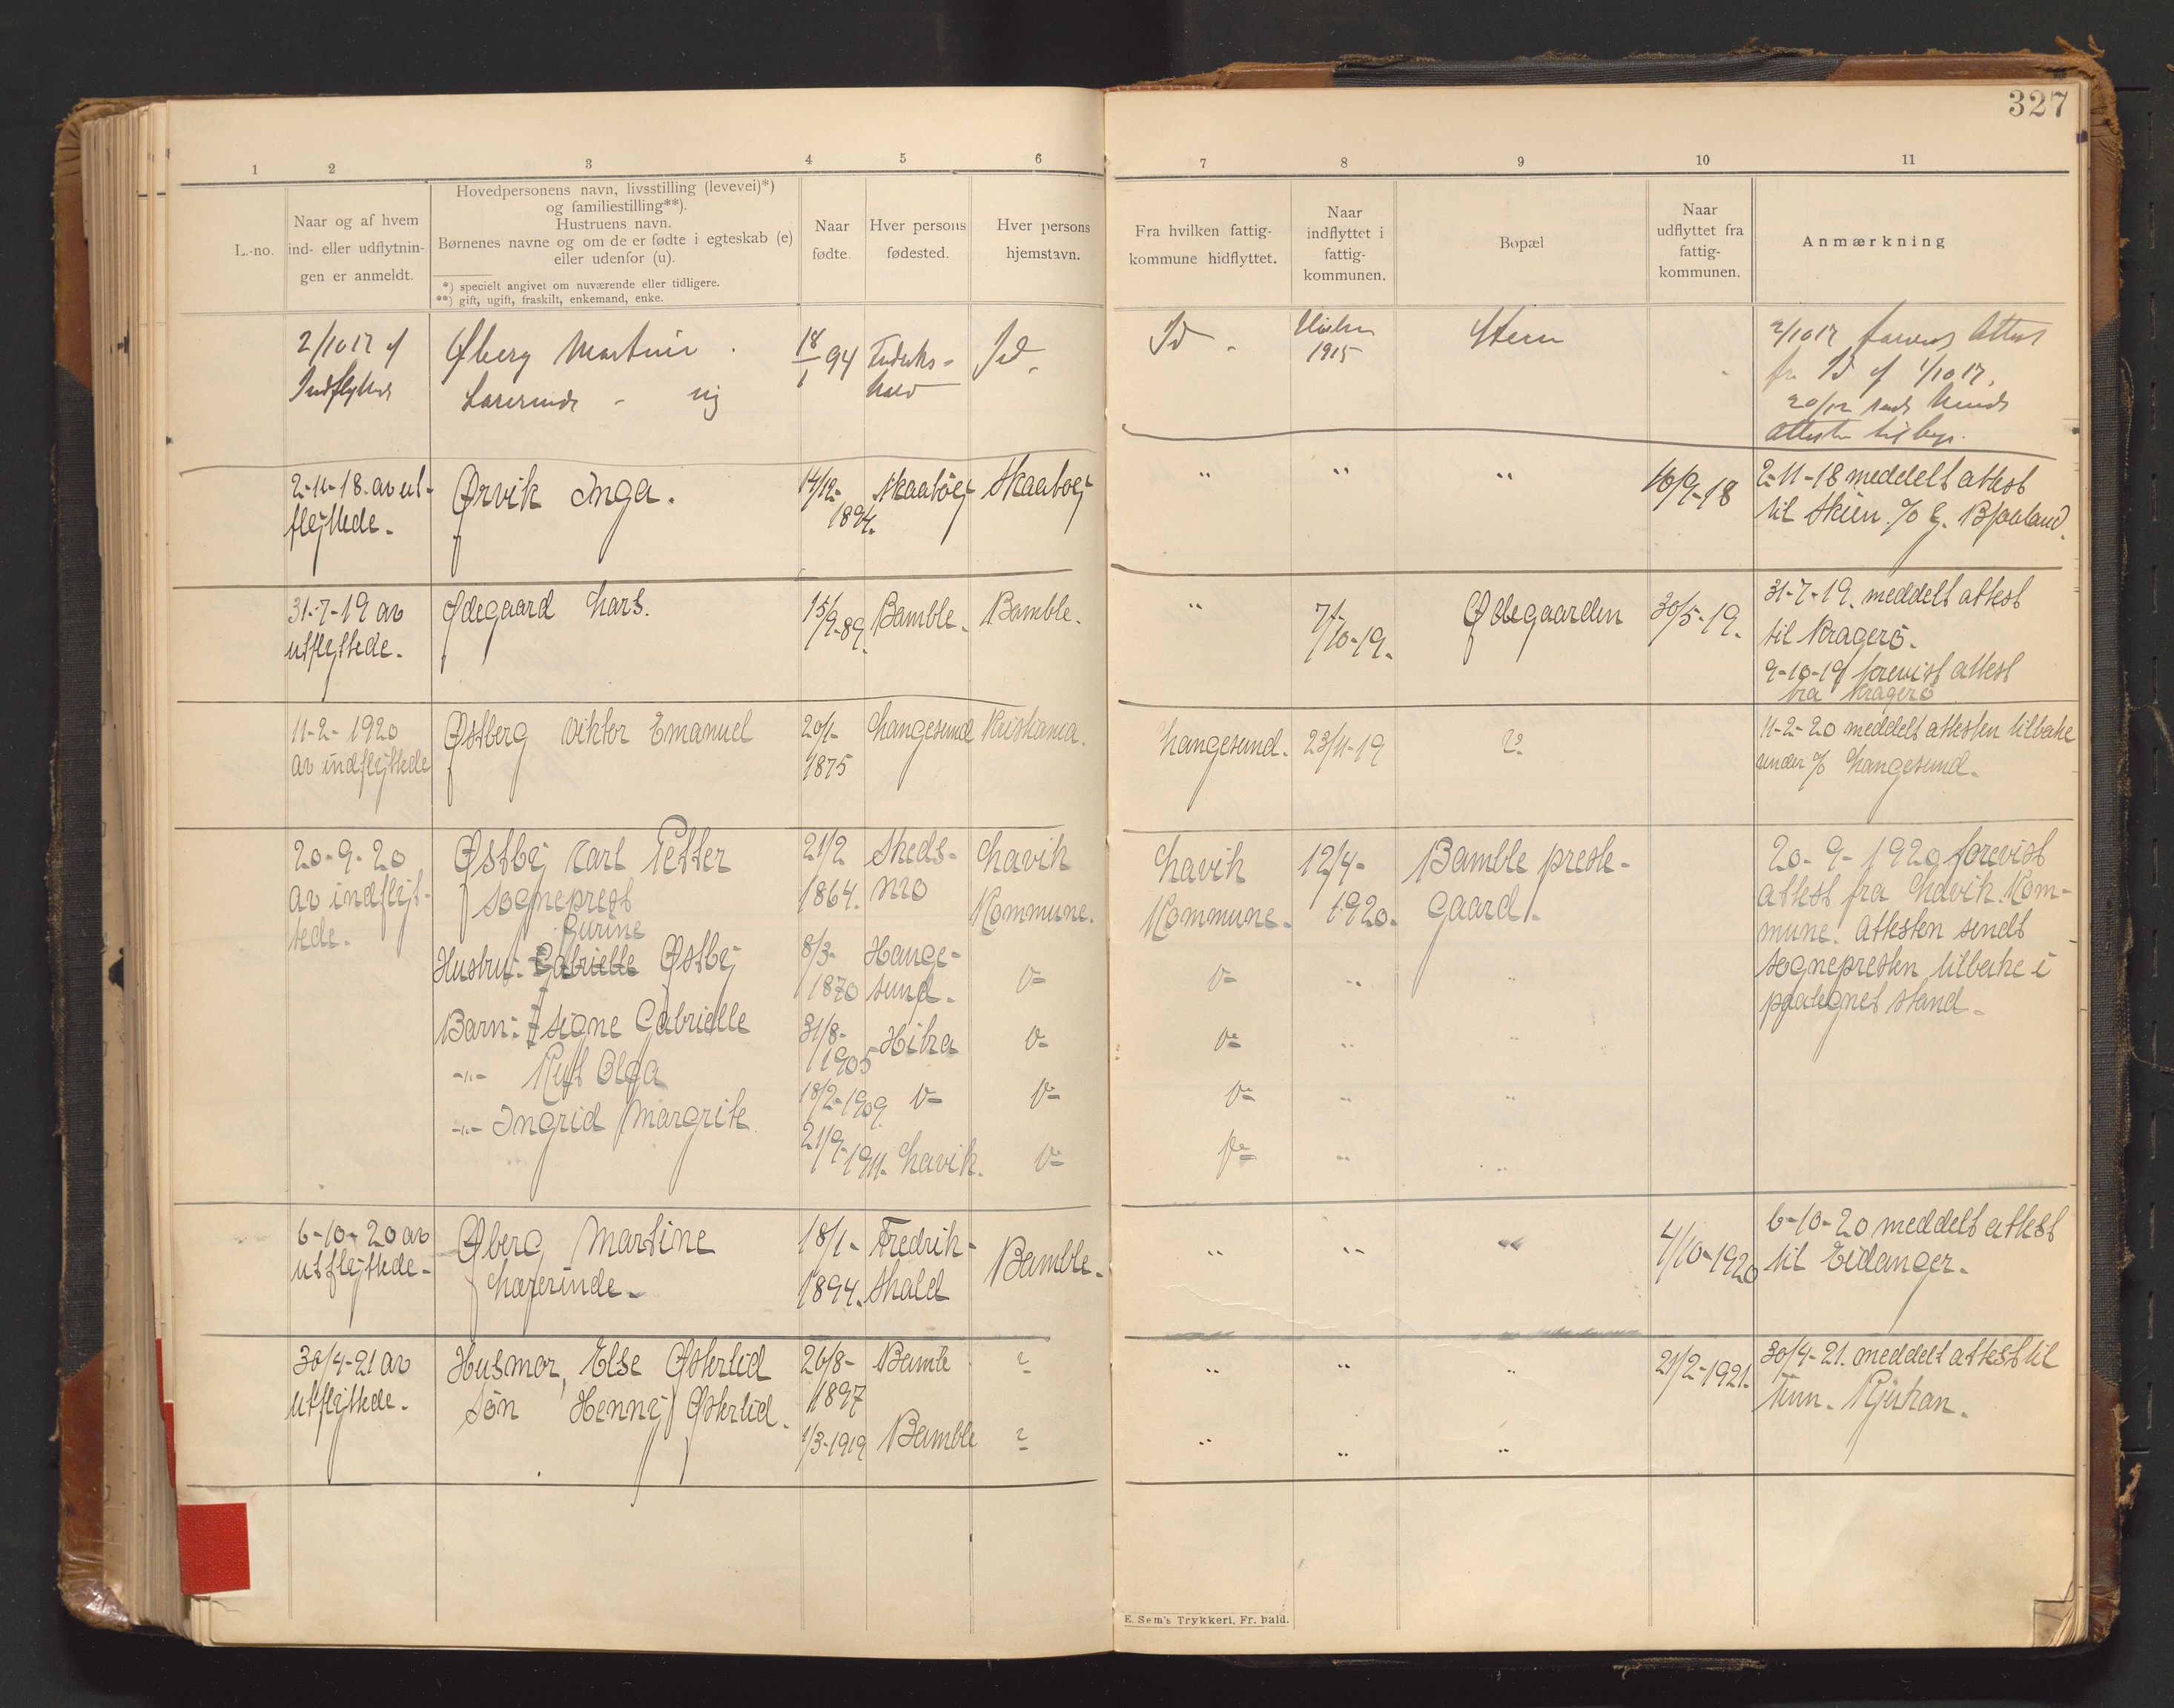 327
1 2 3 4 5 6 7 8 9 10 11
L.-no.
Naar og af hvem
ind- eller udflytnin-
gen er anmeldt.
Hovedpersonens navn, livsstilling (levevei)*)
og familiestilling**).
Hustruens navn.
Børnenes navne og om de er fødte i egteskab (e)
eller udenfor (u).
*) specielt angivet om nuværende eller tidligere.
**) gift, ugift, fraskilt, enkemand, enke.
Naar
fødte.
Hver persons
fødested.
Hver persons
hjemstavn.
Fra hvilken fattig-
kommune hidflyttet.
Naar
indflyttet i
fattig-
kommunen.
Bopæl
Naar
udflyttet fra
fattig-
kommunen.
Anmærkning
2/10 17 af
Indflyttede
Øberg Martine
Lærerinde - ug
18/1 94
Fredriks-
hald
Id
Id
1915
2/10 17
fra Id af 1/10 17.
20/12
2-11-18. av ut-
flyttede.
Ørvik Inga.
14/12-
1894.
Skaatøy
Skaatøy
" " "
16/9-18
2-11-18 meddelt attest
til Skien. % E. Bjaaland.
31-7-19 av
utflyttede.
Ødegaard Lars.
15/9-89.
Bamble.
Bamble.
"
7/10-19.
Ødegaarden
30/5-19.
31-7-19. meddelt attest
til Kragerö.
9-10-19 forevist attest
fra Kragerö
11-2-1920
av indflyttede
Østberg Viktor Emanuel
20/1-
1875
Langesund
Kristiania.
Langesund.
23/11-19
?
11-2-20 meddelt attesten tilbake
under % Langesund.
20-9-20
av indflyt-
tede.
Østby Carl Petter
sogneprest
21/2
1864.
Skeds-
mo
Lavik
Kommune.
Lavik
Kommune.
12/4-
1920.
Bamble preste-
gaard.
20-9-1920 forevist
attest fra Lavik Kom-
mune. Attesten sendt
sognepresten tilbake i
paategnet stand.
Gurine
Hustru: Gabrielle Østby
8/3-
1870
Hauge-
sund.
Barn: Signe Gabrielle
31/8-
1905
Hitra
-"- Rut Olga
18/2-1909
-"- Ingrid Margrite
21/9-1911.
Lavik.
6-10-20 av
utflyttede.
Øberg Martine
Lærerinde.
18/1-
1894.
Fredrik-
shald
Bamble.
" " "
4/10-1920
6-10-20 meddelt attest
til Eidanger.
30/4-21 av
utflyttede.
Husmor, Else Østerlid
26/8-
1897
Bamle
?
" " "
21/2-1921.
30/4-21. meddelt attest til
Tinn. Rjukan.
Søn Henny Østerlid.
1/3-1919
Bamble
?
" " "
E. Sem's Trykkeri, Fr. hald.